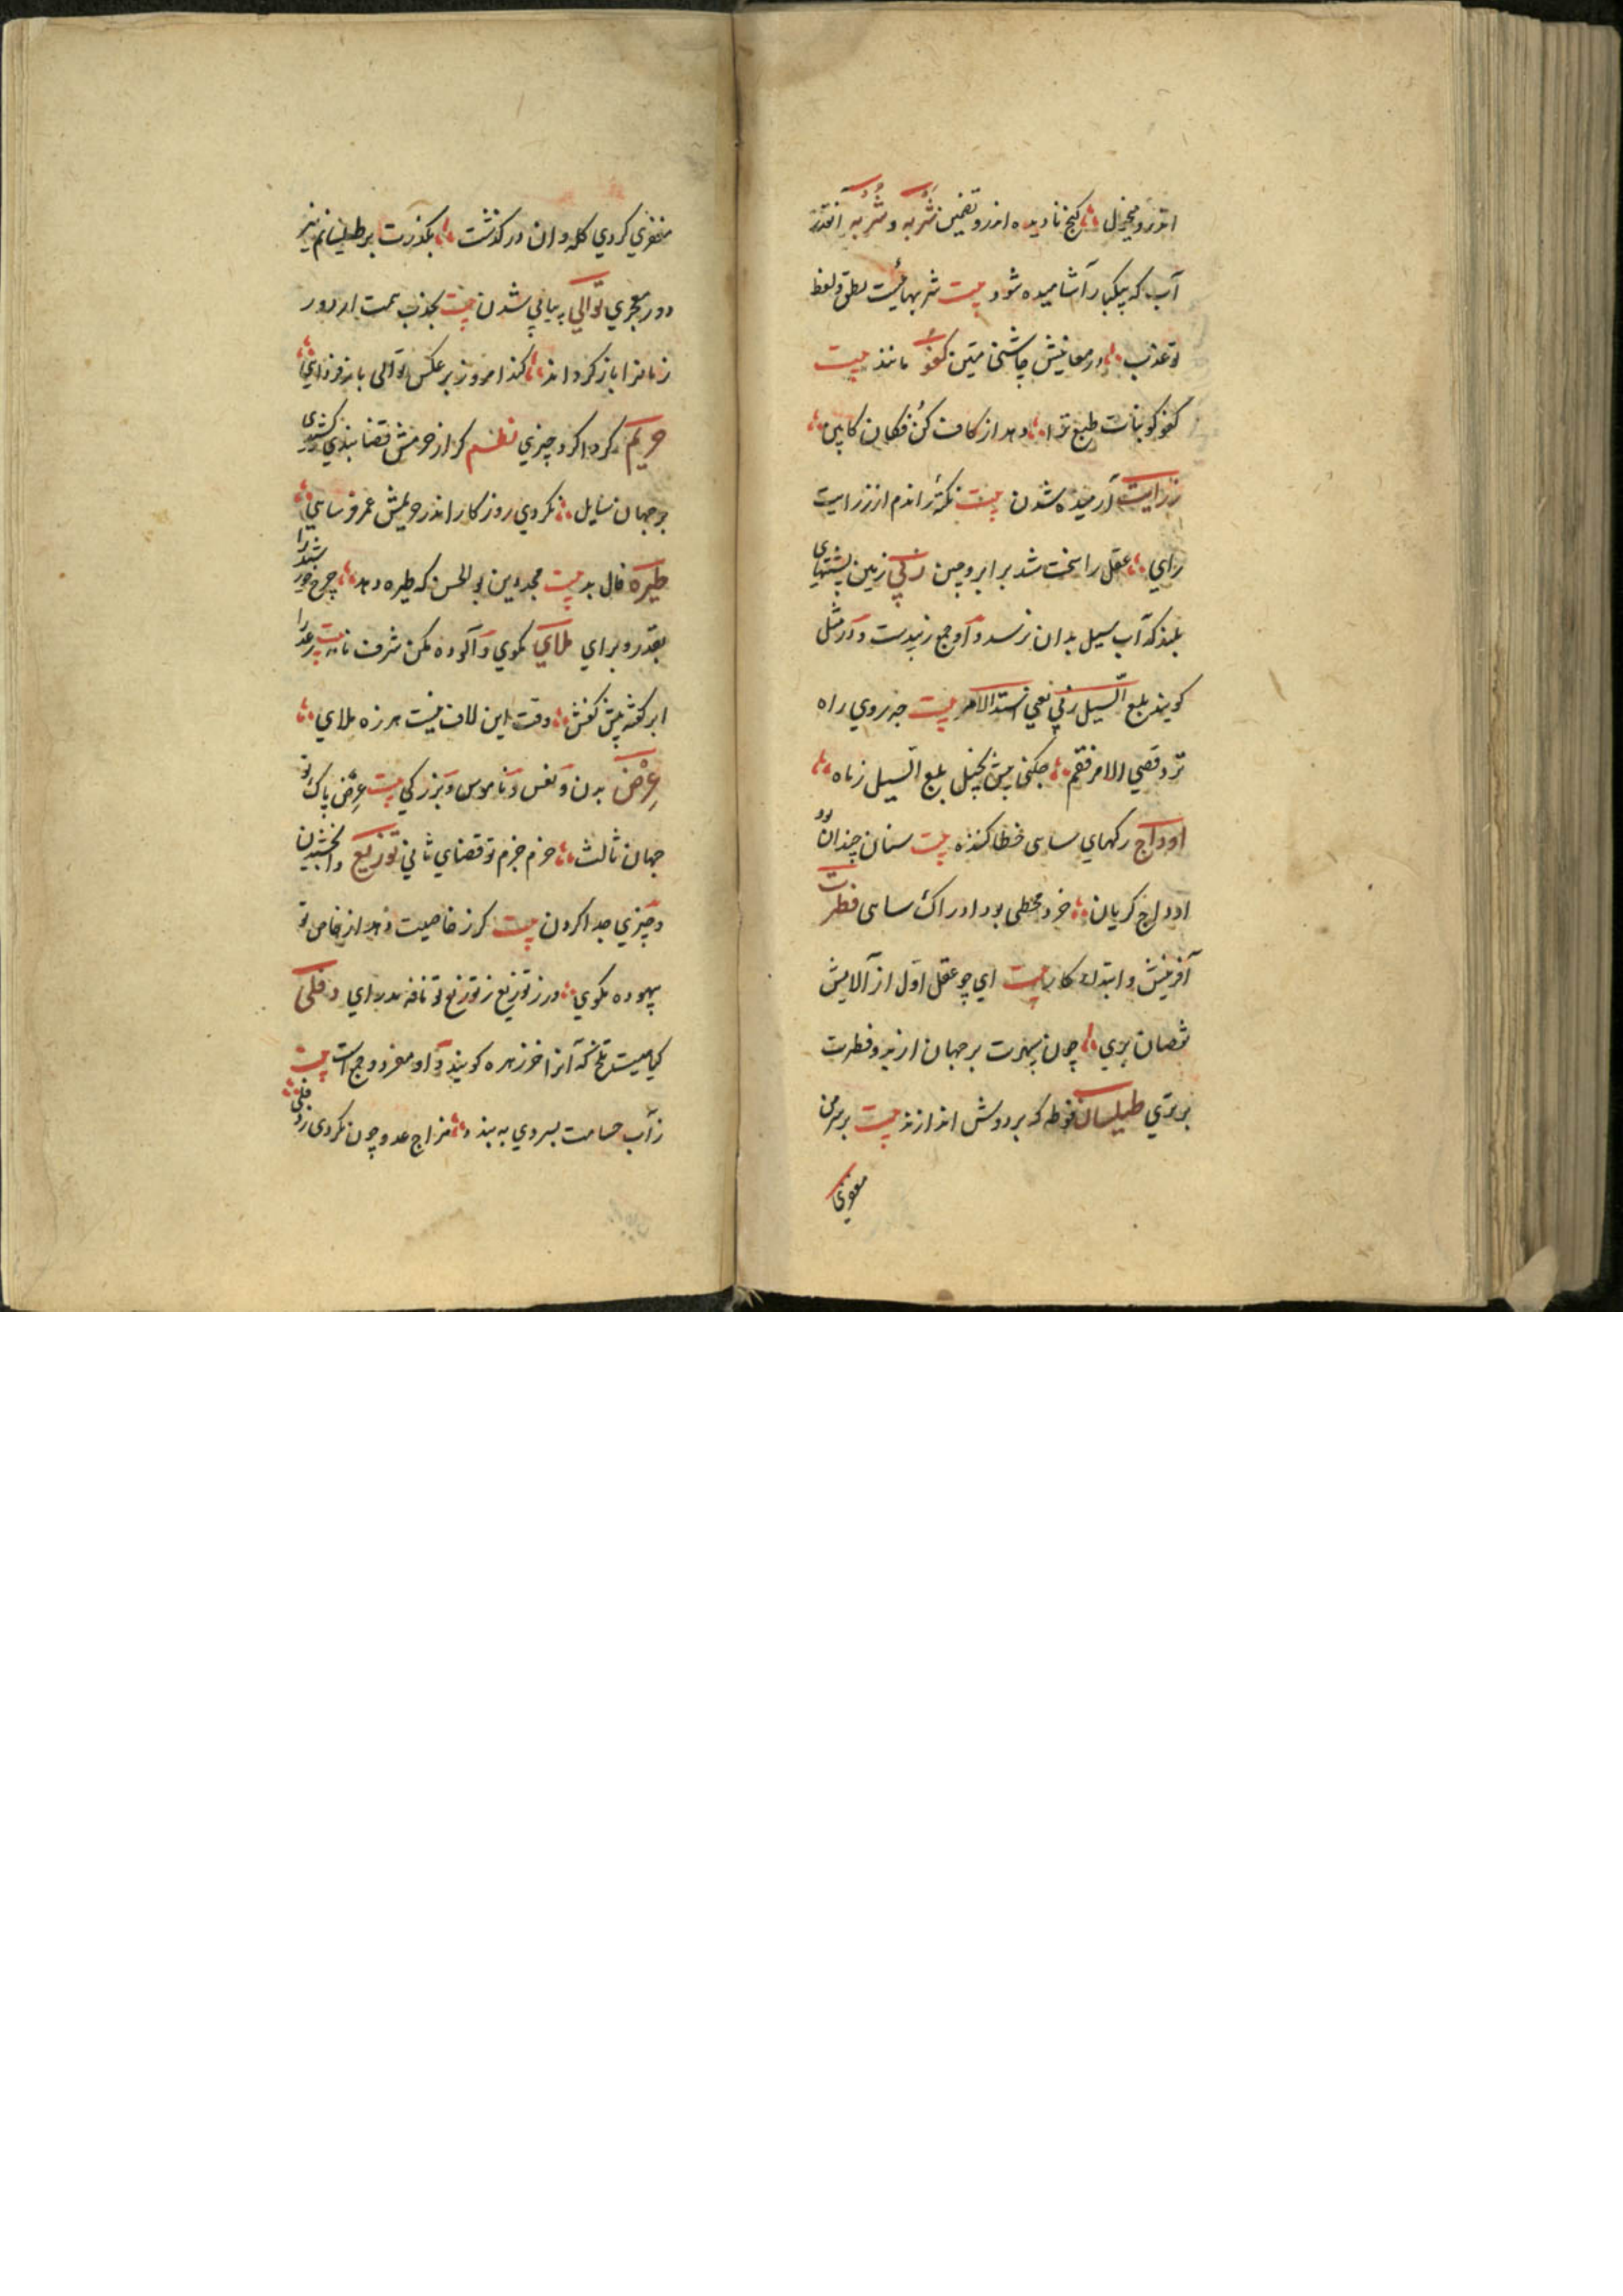 اندرو مخزل ∴ کنج نادیده اندرو تضمین شَربه و شُربه آنقدر
آب که پیکبار آشامیده شود بیت شربهائیست نطق و لفظ
تو عذب ∴ در معانیش چاشنی متین کفو مانند بیت
کفو کو بنات طبع ترا ∴ دهد از کاف کن فکان کابین ∴
زرایت آرمیده شدن بیت نکته راندم از زرایت
رای ∴ عقل را سخت شد بر ابرو چین زبی زمین پشتهای
بلند که آب سیل بدان نرسد و او جمع زبیه است و در مثل
کویند بلغ السیل زبی یعنی اشتد الامر بیت چه روی راه
تردد قضی الامر فقم ∴ چکنی پیش نخیل بلغ السیل زباه ∴
اوداج رکهای ساسی خطا کننده بیت سنان چندان بود
اوداج کریان ∴ خرد مخطی بود ادراک ساهی فطرت
آفرینش و ابتداء کار بیت ای چو عقل اول از آلایش
نقصان بری ∴ چون سپهرت بر جهان از بدو فطرت
برتری طیلسان فوطه که بر دوش اندازند بیت بر سر من
مغفری
مغفری کردی کله و ان درکذشت ∴ بکذرت بر طیلسانم نیز
دور معجری توالی پیاپی شدن بیت بجذب همت ار دور
زمانرا باز کرداند ∴ کند امروز بر عکس توالی باز فردایی ∴
حریم کرد اکرد چیزی نظم کر از حرمش قضا بندی کشیدی
بر جهان شایل ∴ نکردی روزکار اندر حریمش عمر فرسایی ∴
طیره فال بد بیت مجد دین بو الحسن که طیره دهد ∴ چرخ خورشید را
بقدر و برای ملای مکوی و آلوده مکن شرف نامه بیت رعد را
ابر کفته پیش کفش ∴ وقت این لاف نیست هرزه ملای ∴
عِرْض بدن و نفس و ناموس و بزرکی بیت عرض پاک تو
جهان ثالث ∴ حزم جزم تو قضای ثانی توزیع وابخشیدن
و چیزی جدا کردن بیت کر ز خاصیت دهد از خاص تو
بیهوده مکوی ∴ ورز توزیع ز توزیع تو نافه بدرای دفلی
کیاهیست تلخ که آنرا خرزهره کویند و او مفرد و جمع است بیت
ز آب حسامت بسروی به بیند ∴ مزاج عدو چون نکردی ز دفلی ∴